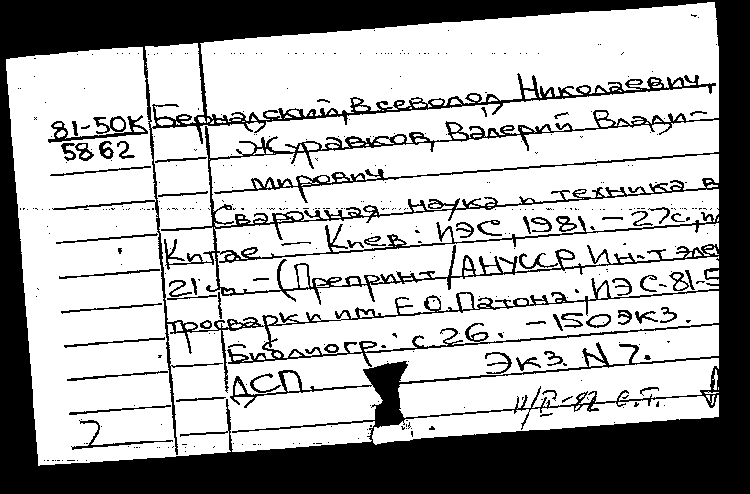 81-50К Бернадский, Всеволод Николаевич,
5862 Журавков, Валерий Влади-
мирович
Сварочная наука и техника в
Китае. — Киев: ИЭС, 1981. — 27с.,
21см. — (Препринт / АНУССР, Ин-т элек
тросварки им. Е.О. Патона; ИЭС-81-5
Библиогр.: с 26. — 150 экз.
ДСП. Экз. N 7.
11/II-82 С.Т.
7